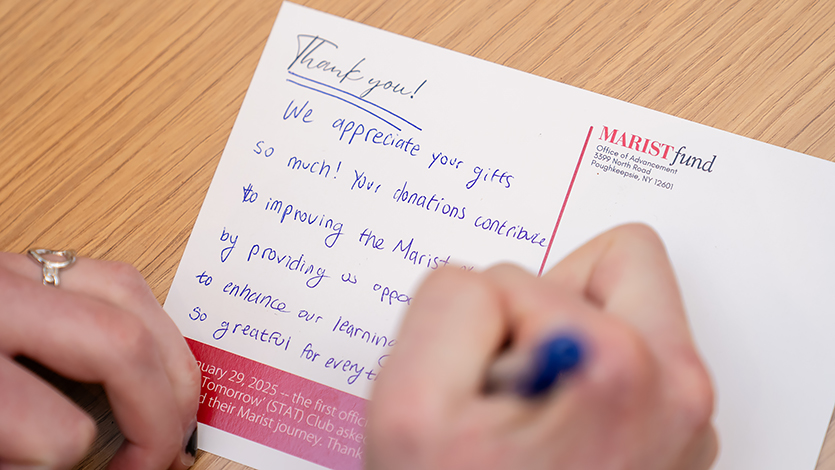 Thank you!
We appreciate your gifts
so much! Your donations contribute
to improving the Marist
by providing us
to enhance our learning
so greatful for
MARISTfund
Office of Advancement
3399 North Road
Poughkeepsie, NY 12601
29, 2025 -- the first
Tomorrow' (STAT) Club
their Marist journey.